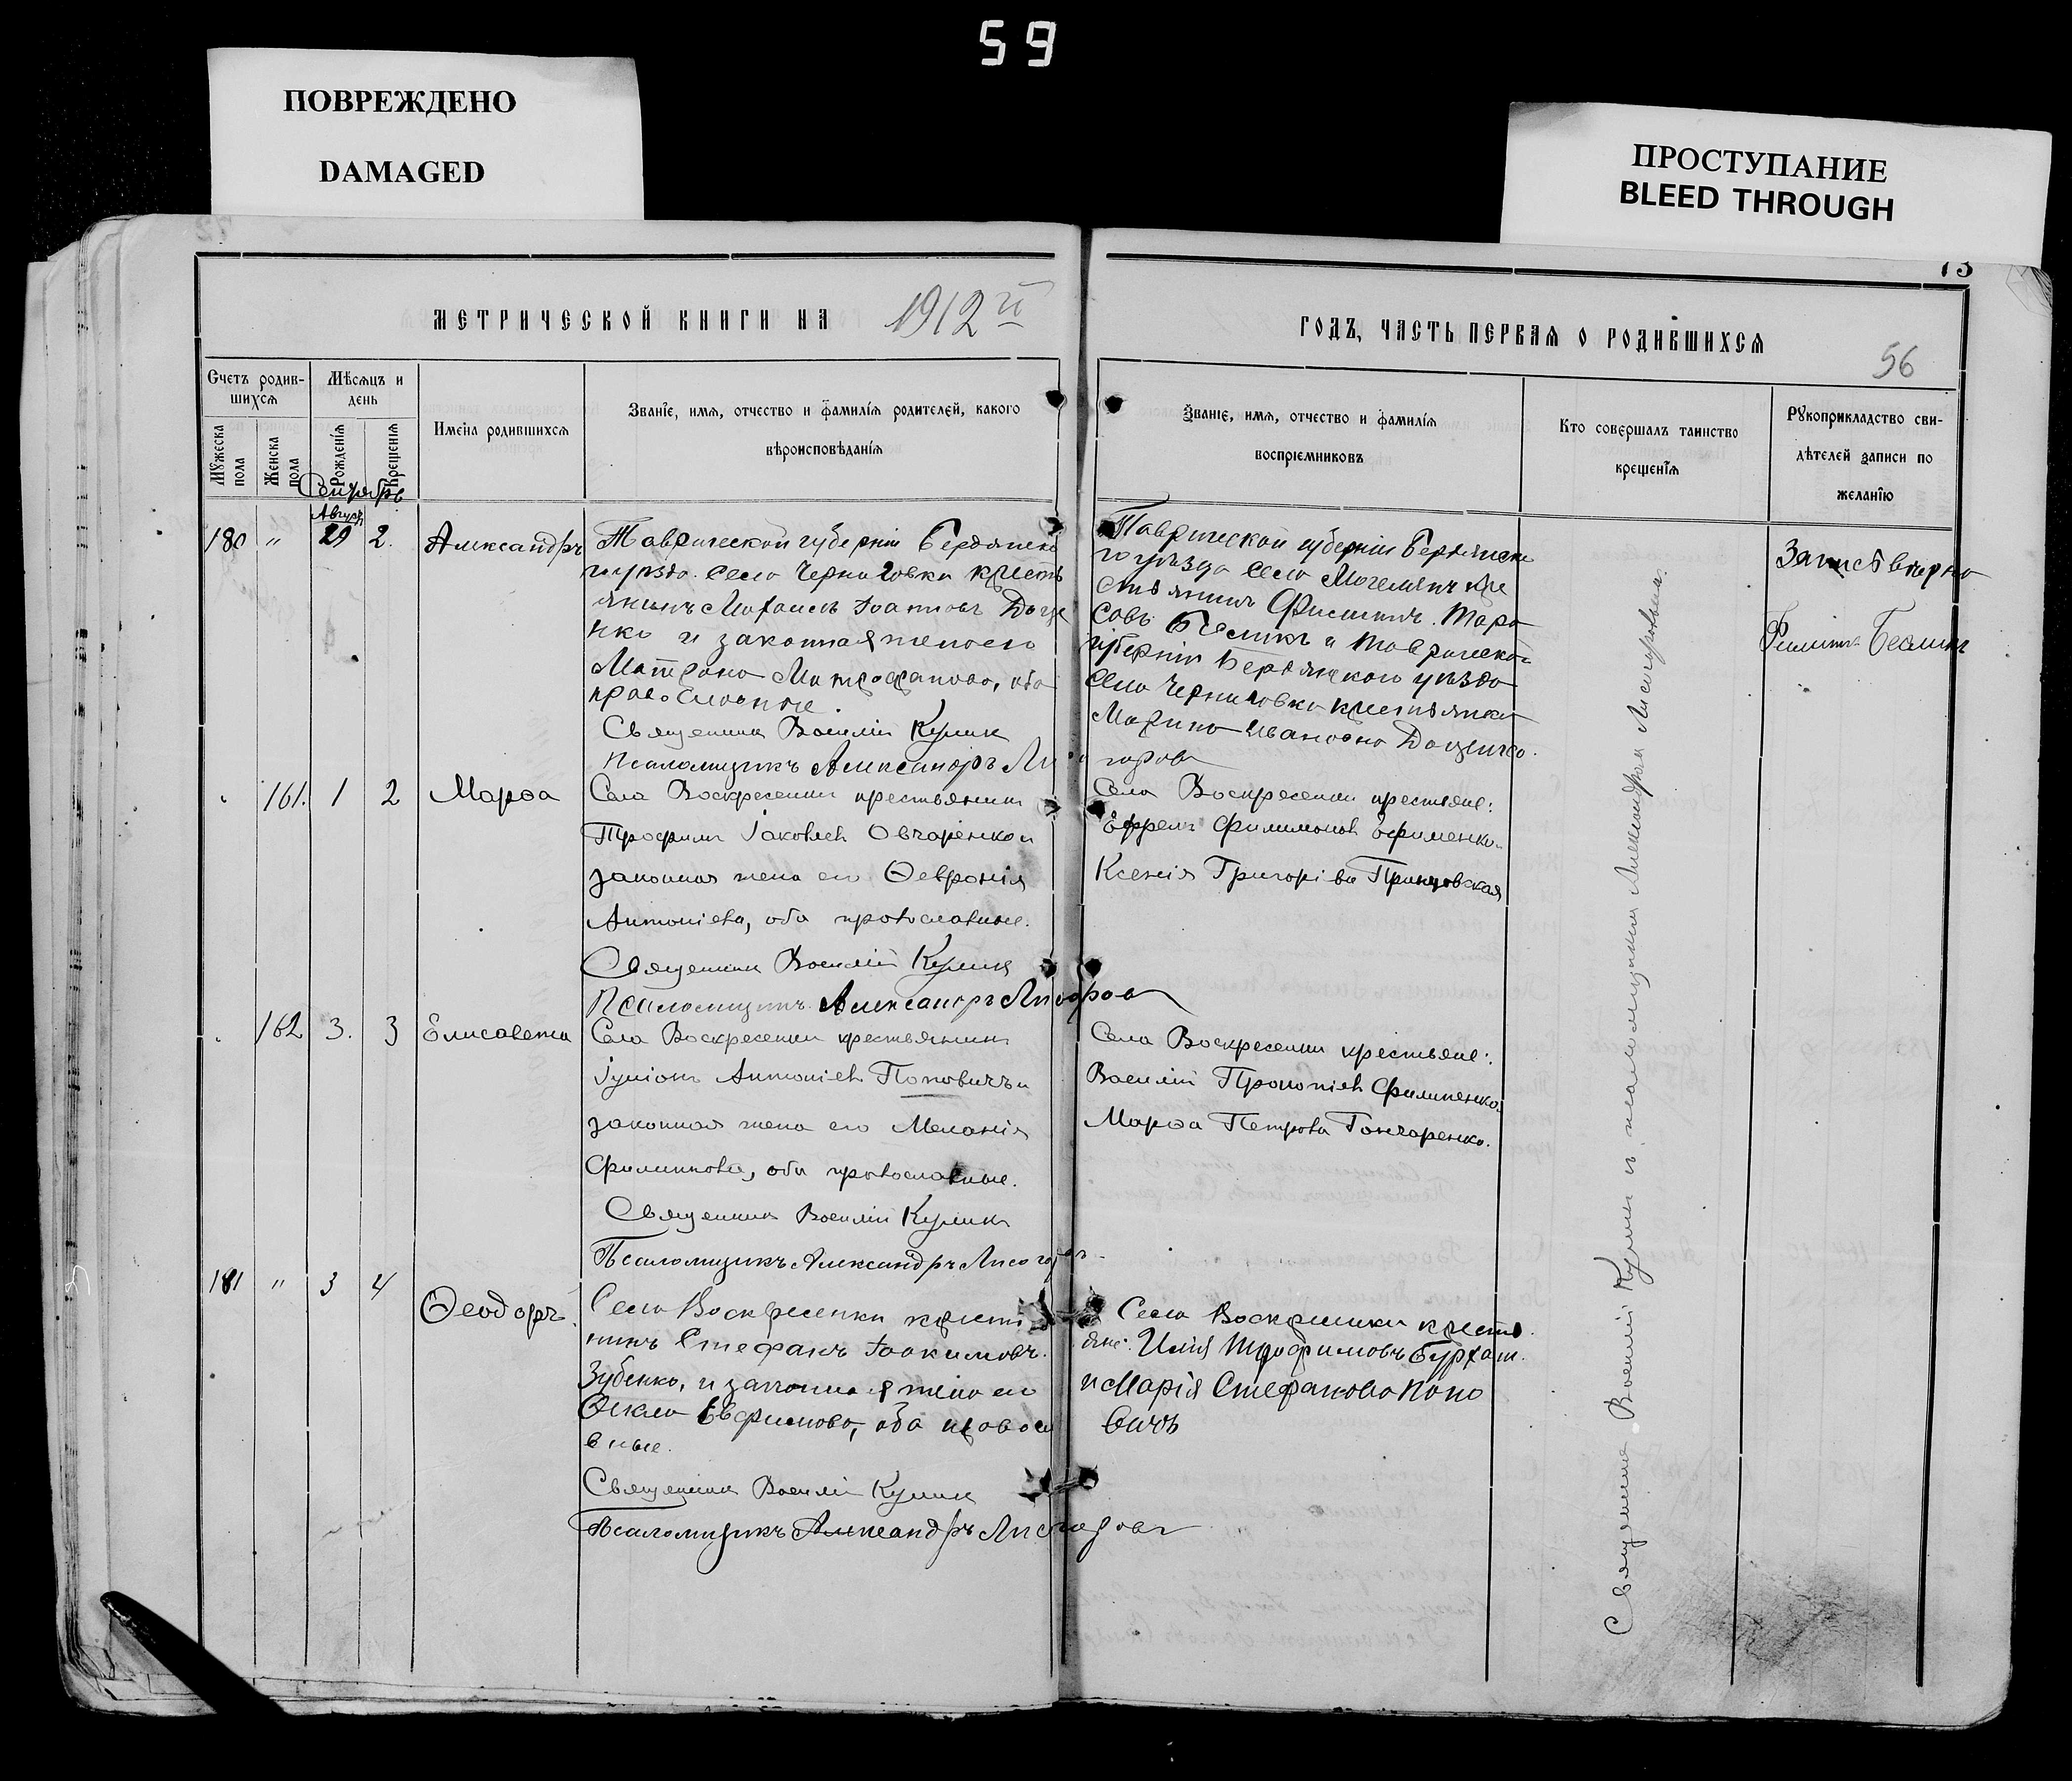 59
ПОВРЕЖДЕНО
DAMAGED
ПРОСТУПАНИЕ
BLEED THROUGH
МЕТРИЧЕСКОЙ КНИГИ НА 1912 й
ГОДЪ, ЧАСТЬ ПЕРВАЯ О РОДИВШИХСЯ
56
Счетъ родив-
шихся
Мужеска пола
Женска пола
Мѣсяцъ и
день
Рожденія
Крещенія
Имена родившихся
Званіе, имя, отчество и фамилія родителей, какого
вѣроисповѣданія
Званіе, имя, отчество и фамилія
воспріемниковъ
Кто совершалъ таинство
крещенія
Рукоприкладство сви-
дѣтелей записи по
желанію
Сентябрь
Августъ
180 " 29 2. Александръ
Таврической губерніи Бердянска
го уѣзда села Черниговки кресть
янинъ Михаилъ Іоанновъ Доце
нко и законная жена его
Матрона Митрофанова, оба
православные.
Священникъ Василій Куликъ
Псаломщикъ Александръ Лисогоровъ
Таврической губерніи Бердянска
го уѣзда села кре
стьянинъ Филиппъ Тара
совъ Беликъ и Таврической
губерніи Бердянскаго уѣзда
села Черниговки крестьянка
Марина Иванова Доценко.
Запись вѣрна
Филиппъ Беликъ
161. 1 2 Марѳа
Села Воскресенки крестьянинъ
Трофимъ Іаковлев Овчаренко и
законная жена его Ѳевронія
Антоніева, оба православные.
Священникъ Василій Куликъ
Псаломщикъ Александръ Лисогоровъ
Села Воскресенки крестьяне:
Ефремъ Филимонов Ефименко и
Ксенія Григоріва
162 3. 3 Елисавета
Села Воскресенки крестьянинъ
Іуліанъ Антоніев Поповичъ и
законная жена его Меланія
Филиппова, оба православные.
Священникъ Василій Куликъ
Псаломщикъ Александръ Лисогоровъ
Села Воскресенки крестьяне:
Василій Прокопіев Филипенко и
Марѳа Петрова Гончаренко.
181 " 3 4 Ѳеодоръ
Села Воскресенки крестья
нинъ Стефанъ Іоакимовъ
Зубенко, и законная жена его
Ѳекла Евфимова, оба правосла
вные.
Священникъ Василій Куликъ
Псаломщикъ Александръ Лисогоровъ
Села Воскресенки кресть
яне: Илія Трофимовъ Бурхан
и Марія Стефанова Попо
вичъ
Священникъ Василій Куликъ и псаломщикъ Александръ Лисогоровъ.